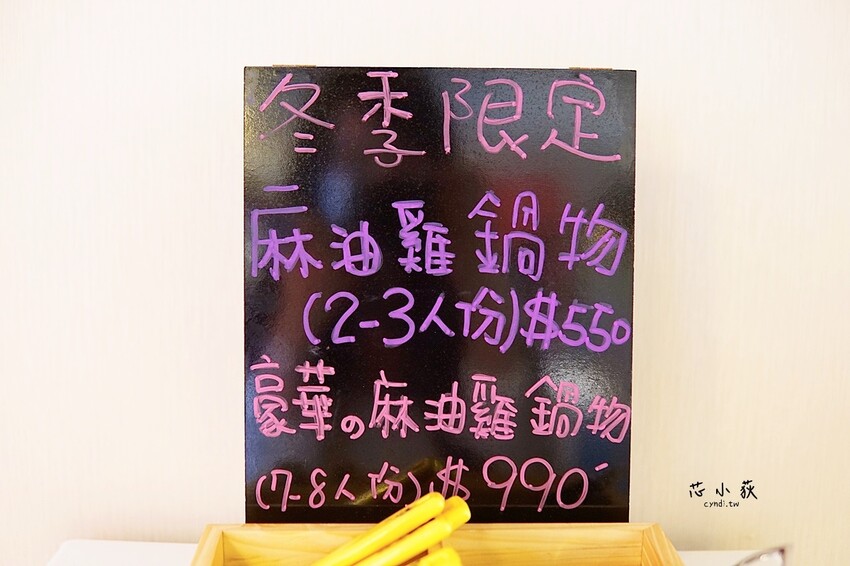 冬季限定
麻油雞鍋物
(2-3人份)$550
豪華の麻油雞鍋物
(7-8人份)$990
芯小荻
cyndi.tw